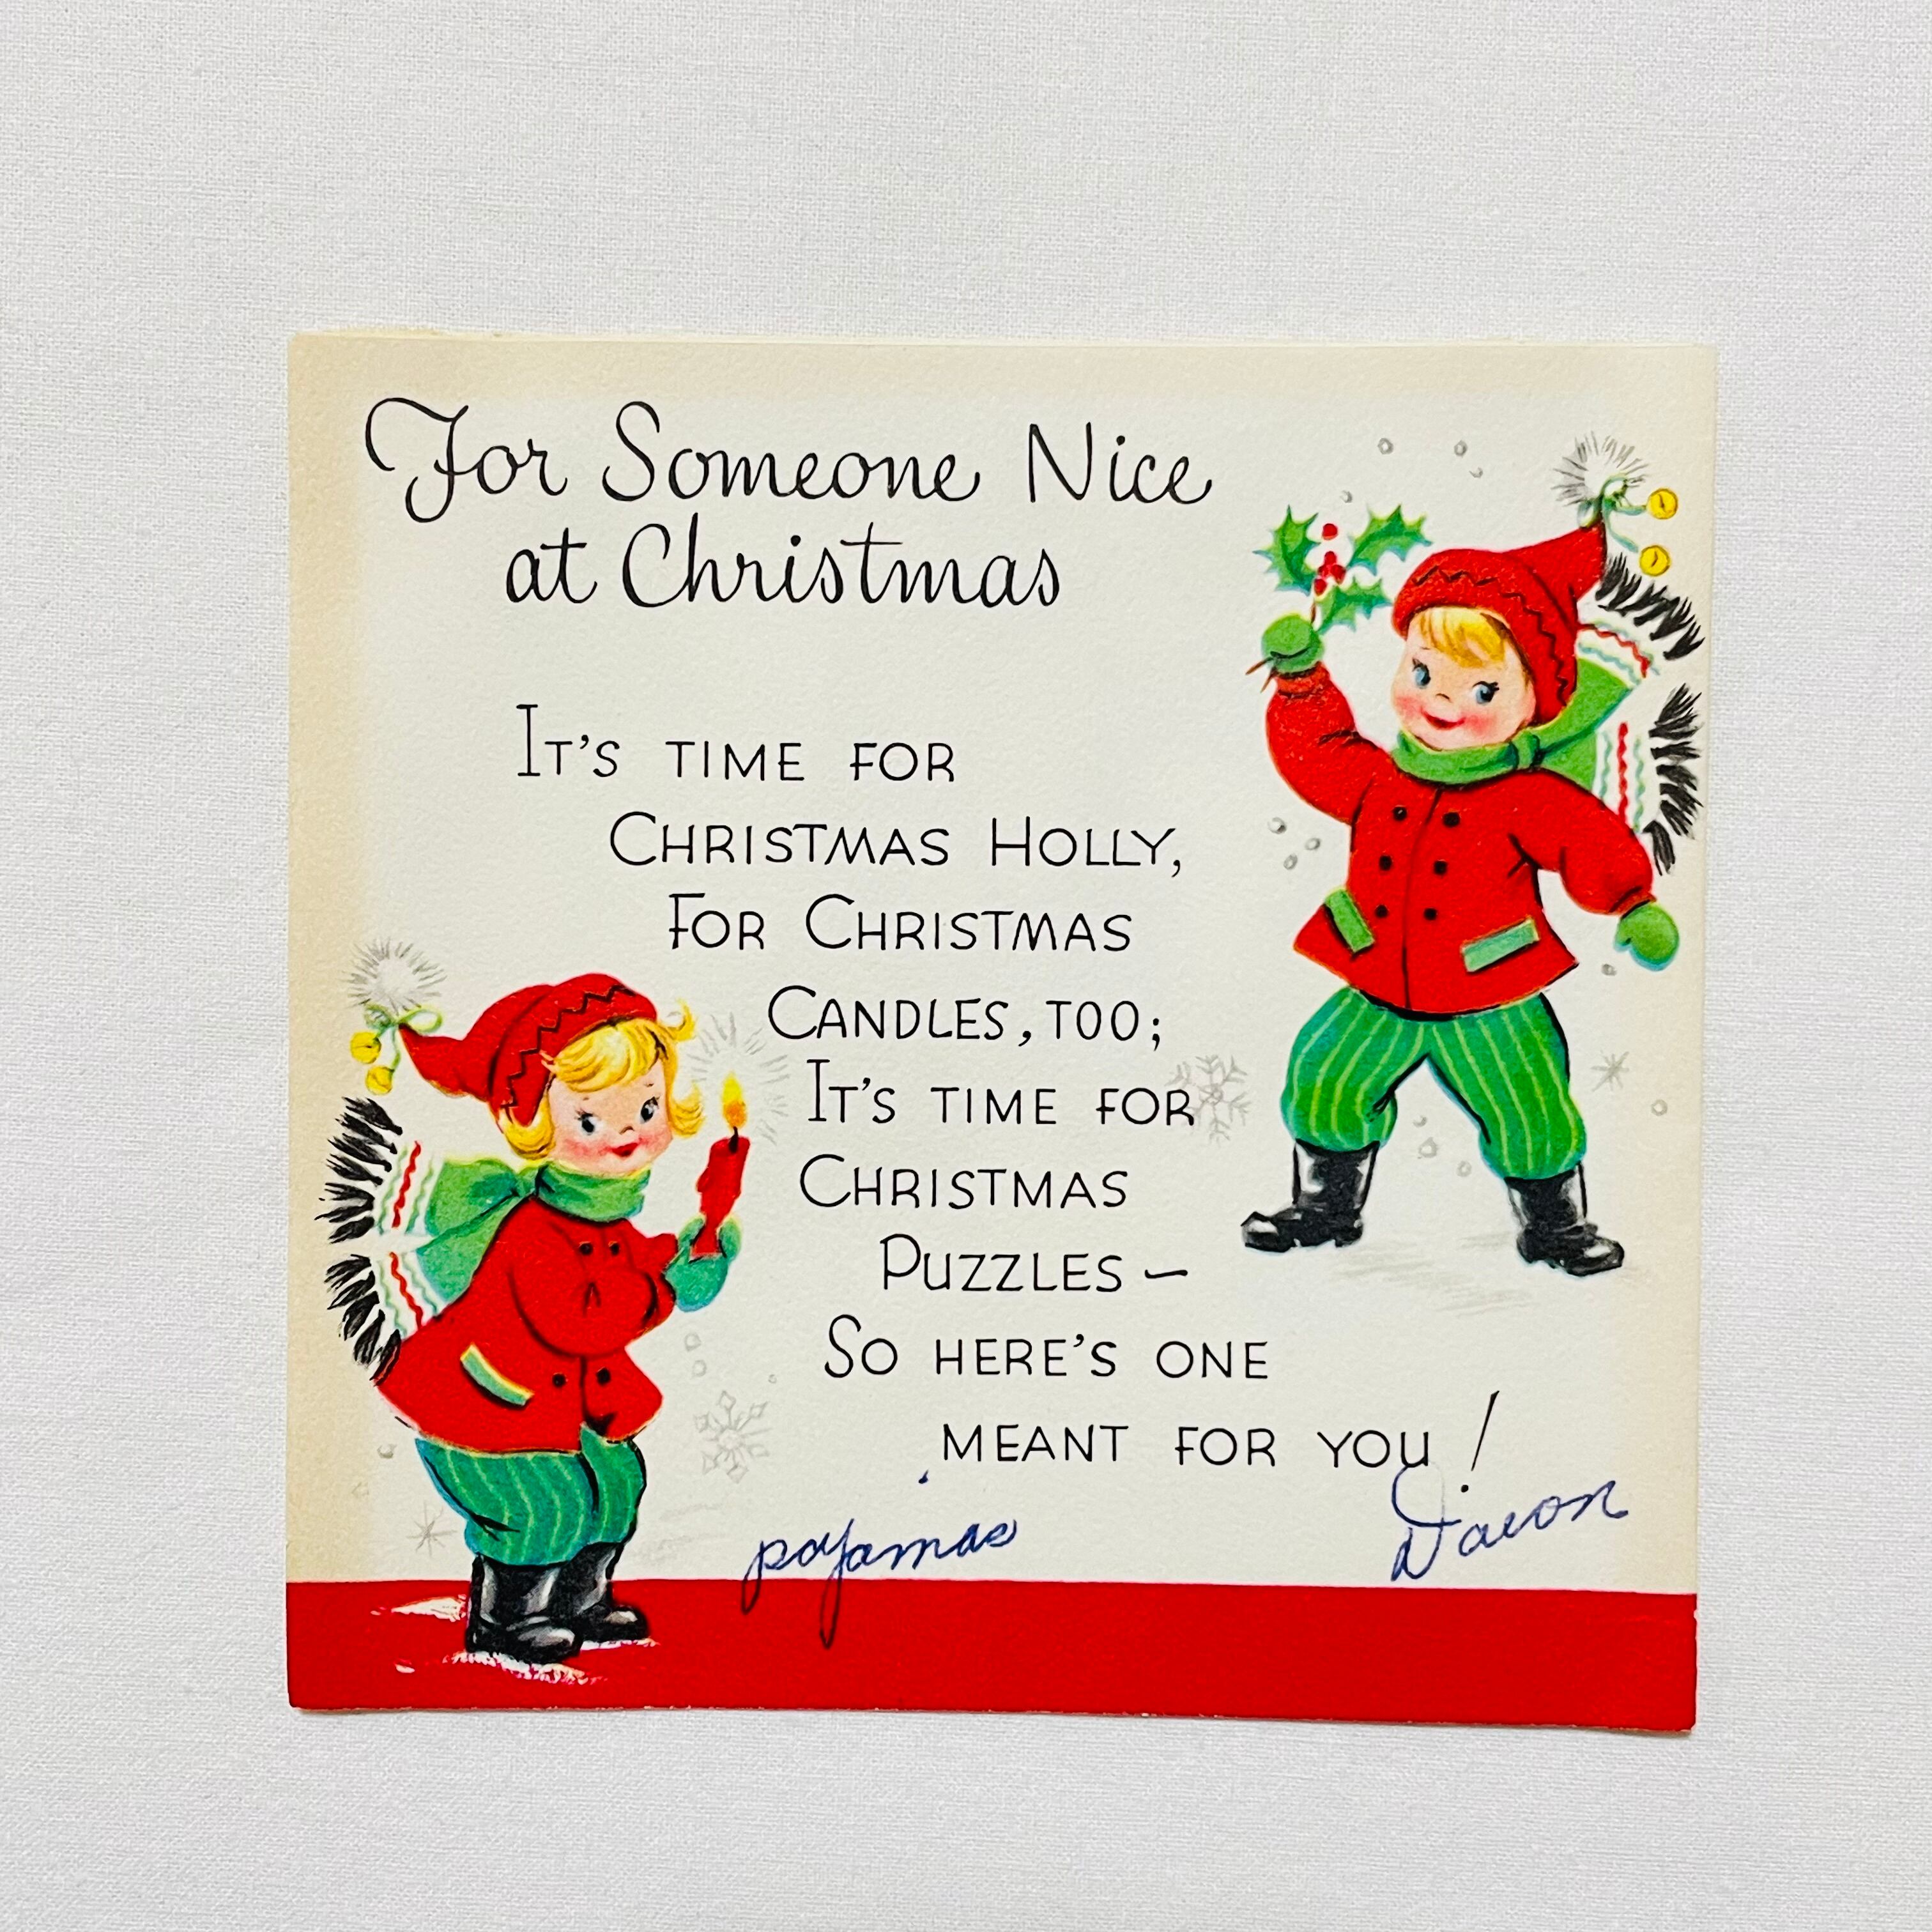 For Someone Nice
at Christmas
IT'S TIME FOR
CHRISTMAS HOLLY,
FOR CHRISTMAS
CANDLES, TOO;
IT'S TIME FOR
CHRISTMAS
PUZZLES –
SO HERE'S ONE
MEANT FOR YOU!
pajamas